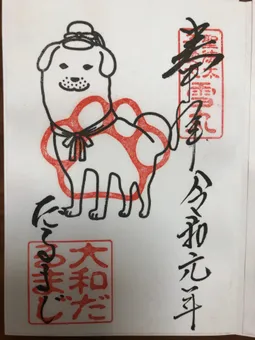 奉拝
雪丸
令和元年
だるまじ
大和だ
るまじ